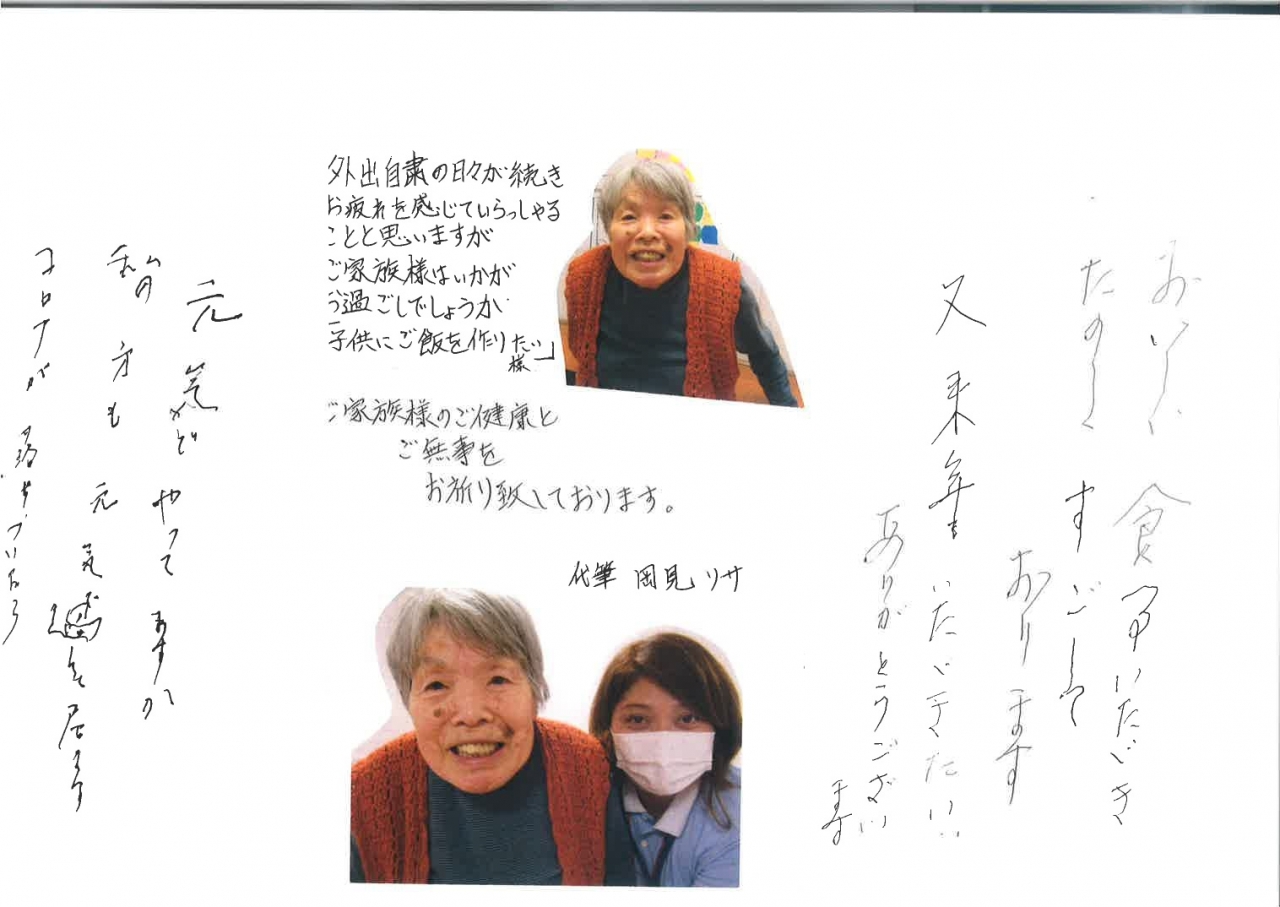 おいしい食事いただき
たのしくすごして
おります
又来年もいただきたい
ありがとうござい
ます
外出自粛の日々が続き
お疲れを感じていらっしゃる
ことと思いますが
ご家族様はいかが
お過ごしでしょうか
「子供にご飯を作りたい」
様
ご家族様のご健康と
ご無事を
お祈り致しております。
代筆 岡見 リサ
元気がどやってますか
私の方も元気で過を居ます
コロナが